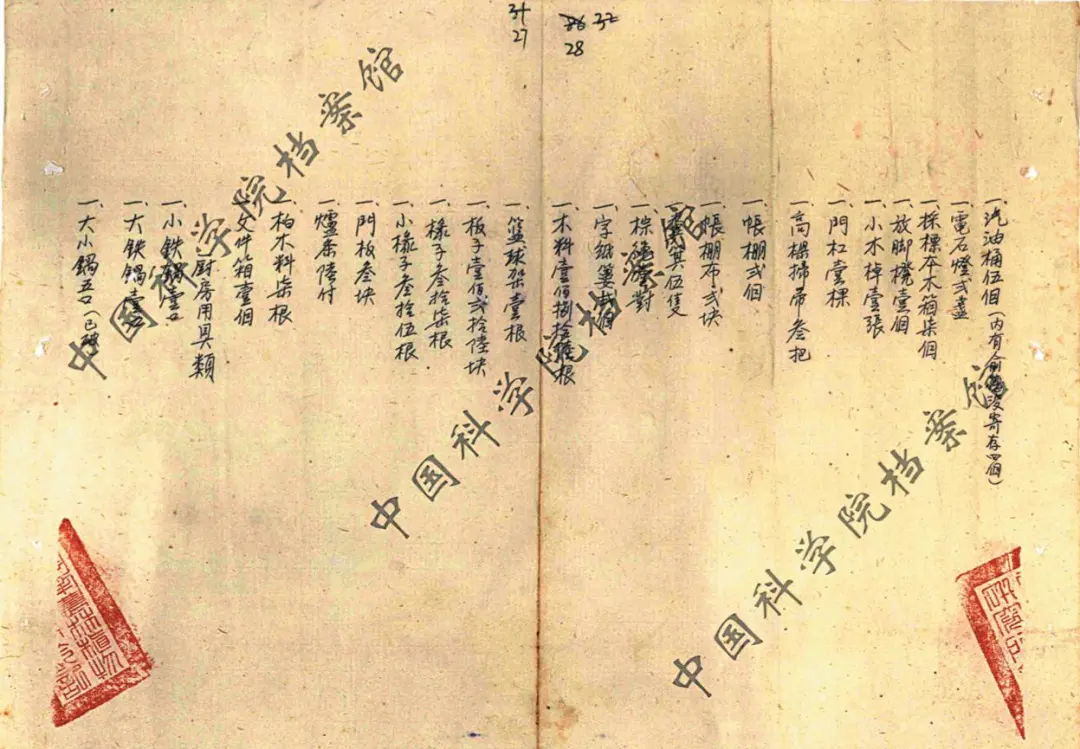 34 86 32
27 28
一、汽油桶伍個（內有俞 没寄存四個）
一、電石燈弍盞
一、採棵本木箱柒個
一、放脚櫈壹個
一、小木棹壹張
一、門杠壹棵
一、高樑掃帚叁把
一、帳棚弍個
一、帳棚布弍块
一、 其伍隻
一、棕 對
一、字紙簍 個
一、木料壹佰捌拾 根
一、籃球架壹根
一、板子壹佰弍拾陸块
一、椽子叁拾柒根
一、小椽子叁拾伍根
一、門板叁块
一、爐条陸付
一、柏木料柒根
一、文件箱壹個
厨房用具類
一、小鉄鍋壹口
一、大鉄鍋壹口
一、大小鍋五口（已破
中国科学院档案馆
中国科学院档案馆
中国科学院档案馆